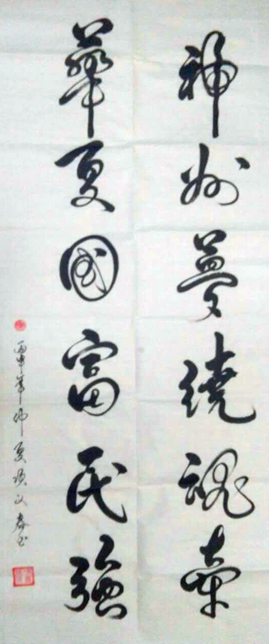 神州夢繞魂牽
華夏國富民強
丙申年仲夏